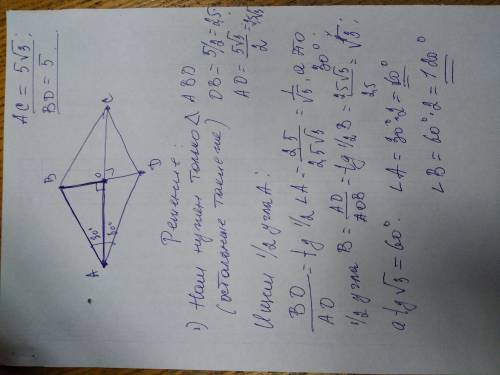 AC = 5√3
BD = 5
B
C
A
D
O
30°
30°
Решение:
1) Нам нужен только △ ABO
(остальные такие же)
OB = 5/2 = 2,5
AO = 5√3/2 = 2,5√3
Ищем 1/2 угла A:
BO/AO = tg 1/2 ∠A = 2,5/2,5√3 = 1/√3; а это 30°
1/2 угла B = AO/BO = tg 1/2 B = 2,5√3/2,5 = √3;
a tg √3 = 60° ∠A = 30°·2 = 60°
∠B = 60°·2 = 120°